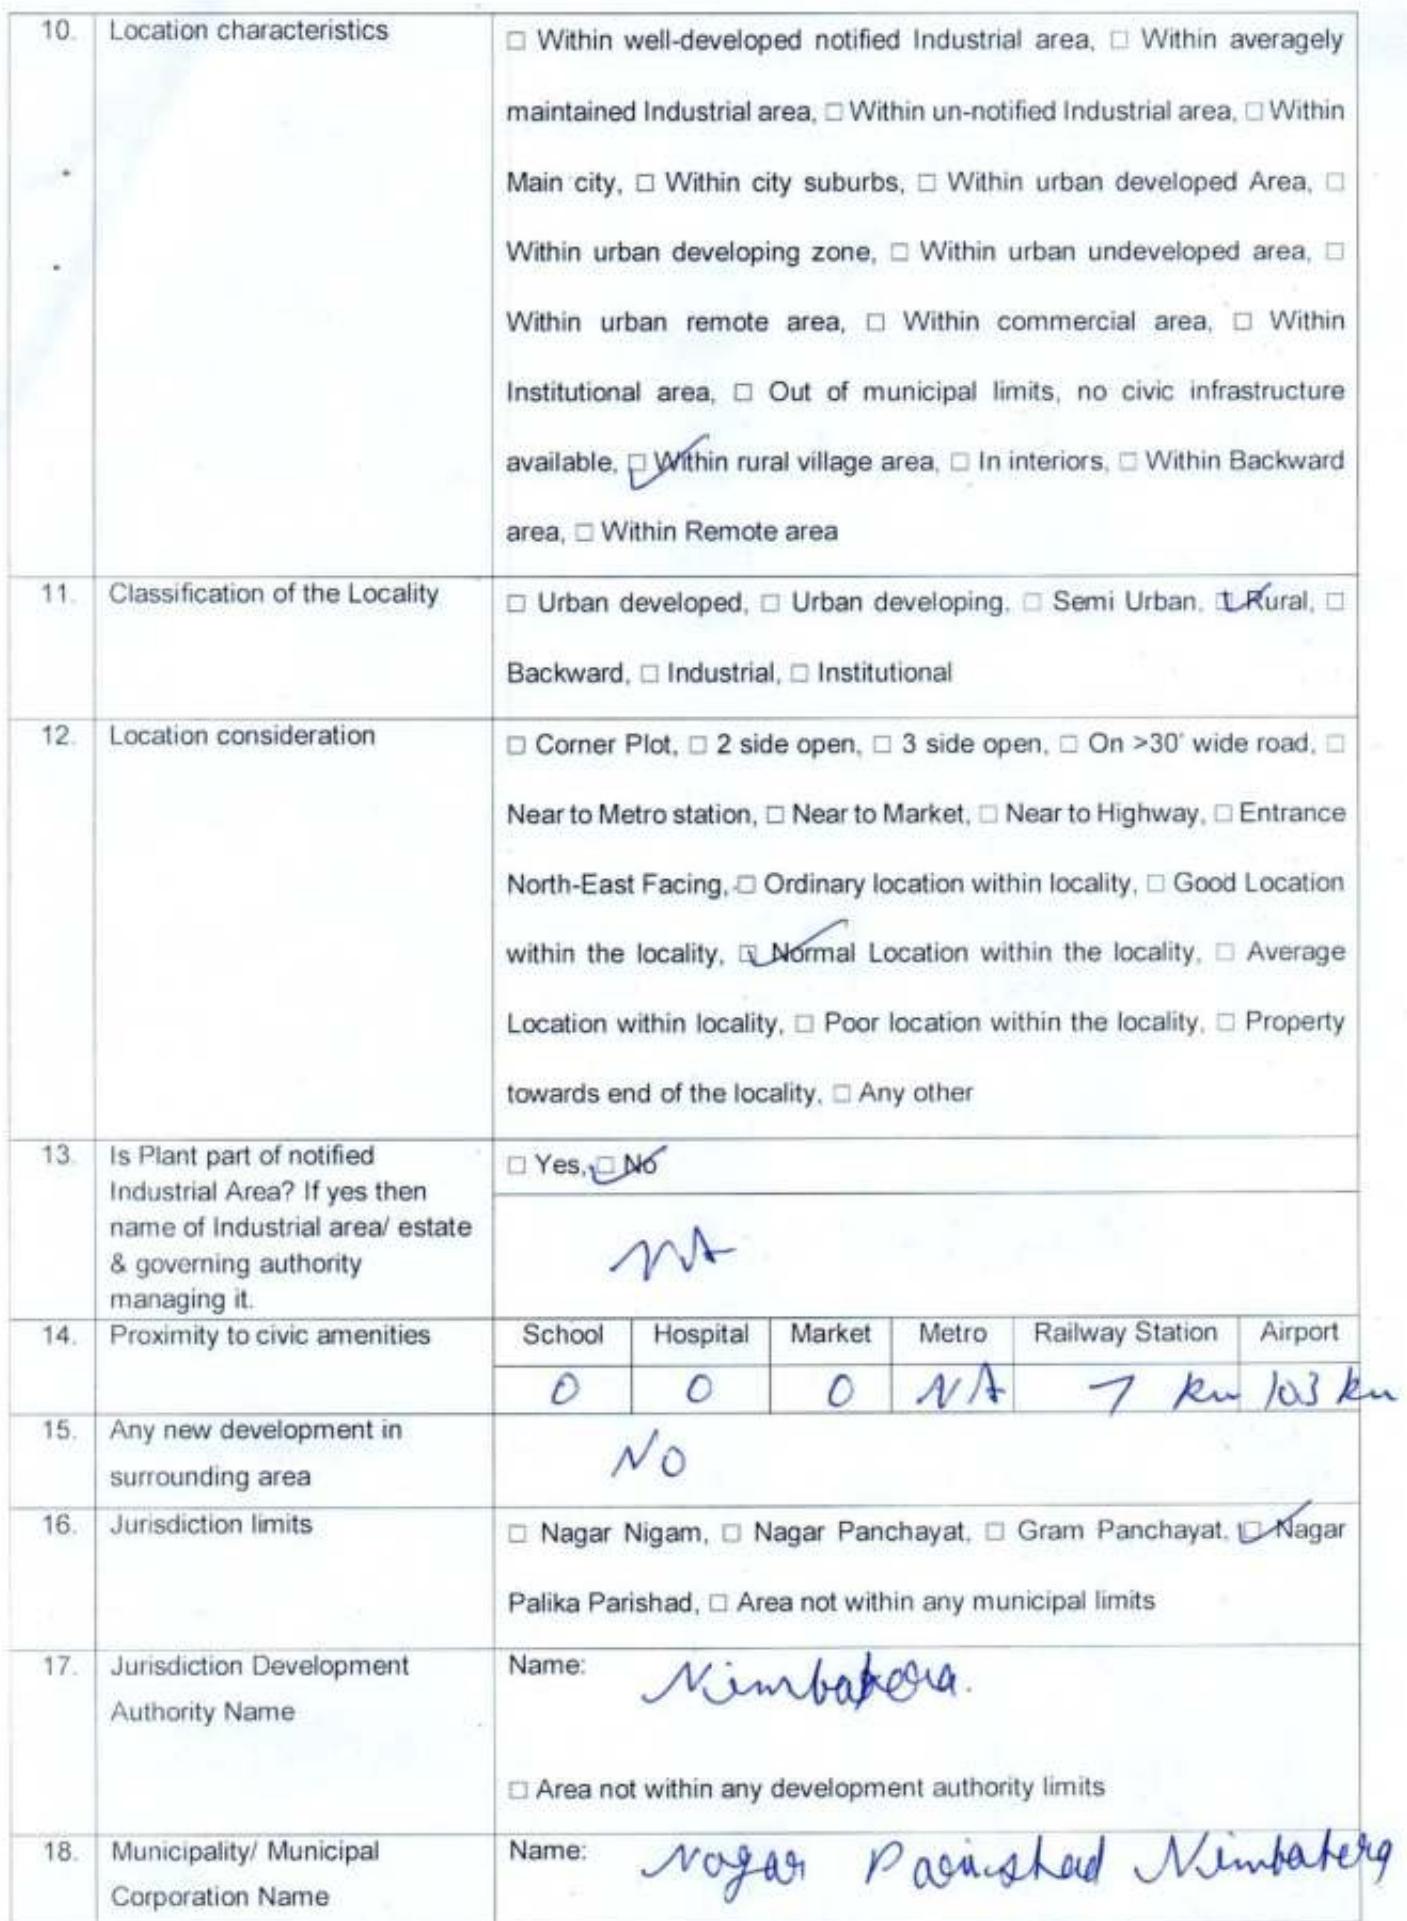 10. Location characteristics
□ Within well-developed notified Industrial area, □ Within averagely
maintained Industrial area, □ Within un-notified Industrial area, □ Within
Main city, □ Within city suburbs, □ Within urban developed Area, □
Within urban developing zone, □ Within urban undeveloped area, □
Within urban remote area, □ Within commercial area, □ Within
Institutional area, □ Out of municipal limits, no civic infrastructure
available, ☑ Within rural village area, □ In interiors, □ Within Backward
area, □ Within Remote area
11. Classification of the Locality
□ Urban developed, □ Urban developing, □ Semi Urban, ☑ Rural, □
Backward, □ Industrial, □ Institutional
12. Location consideration
□ Corner Plot, □ 2 side open, □ 3 side open, □ On >30' wide road, □
Near to Metro station, □ Near to Market, □ Near to Highway, □ Entrance
North-East Facing, □ Ordinary location within locality, □ Good Location
within the locality, ☑ Normal Location within the locality, □ Average
Location within locality, □ Poor location within the locality, □ Property
towards end of the locality, □ Any other
13. Is Plant part of notified
Industrial Area? If yes then
name of Industrial area/ estate
& governing authority
managing it.
□ Yes, ☑ No
NA
14. Proximity to civic amenities
School Hospital Market Metro Railway Station Airport
0 0 0 NA 7 km 103 km
15. Any new development in
surrounding area
No
16. Jurisdiction limits
□ Nagar Nigam, □ Nagar Panchayat, □ Gram Panchayat, ☑ Nagar
Palika Parishad, □ Area not within any municipal limits
17. Jurisdiction Development
Authority Name
Name: Nimbahera.
□ Area not within any development authority limits
18. Municipality/ Municipal
Corporation Name
Name: Nagar Parishad Nimbahera